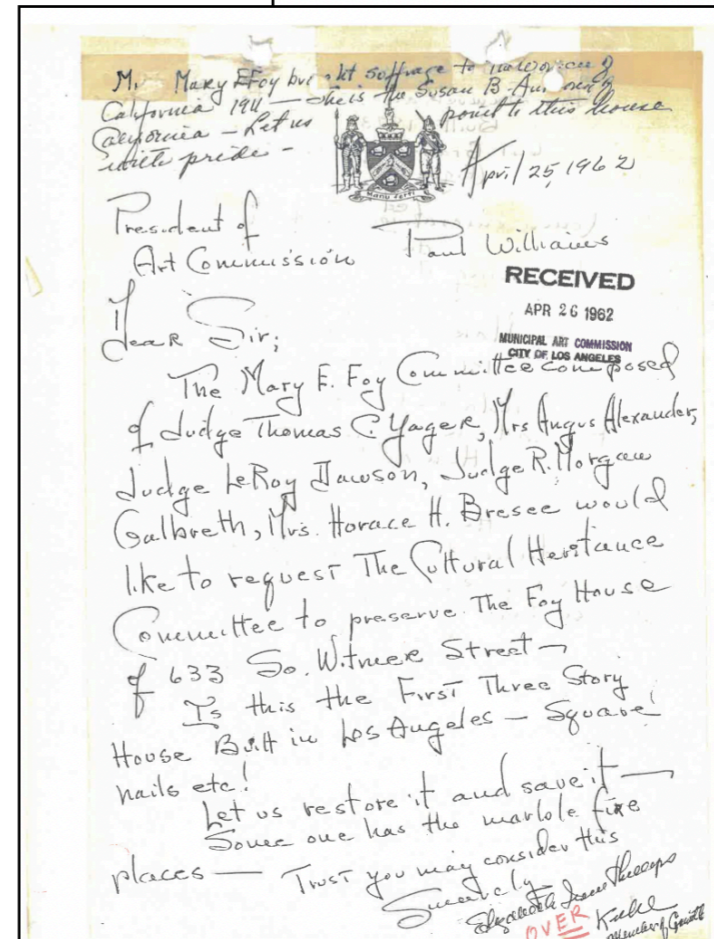 Mary E Foy brought suffrage to
California 1911 — She is the Susan B. of
California — Let us point to this house
with pride -
MANU FORTI
April 25, 1962
President of
Art Commission Paul Williams
RECEIVED
APR 26 1962
MUNICIPAL ART COMMISSION
CITY OF LOS ANGELES
Dear Sir;
The Mary E. Foy Committee composed
of Judge Thomas C. Yager, Mrs Angus Alexander,
Judge LeRoy Dawson, Judge R. Morgan
Galbreth, Mrs. Horace H. Bresee would
like to request The Cultural Heritance
Committee to preserve The Foy House
of 633 So. Witmer Street —
Is this the First Three Story
House Built in Los Angeles — Square
nails etc!
Let us restore it and save it —
Some one has the marble fire
places — Trust you may consider this
Sincerely
Elizabeth
OVER
Member